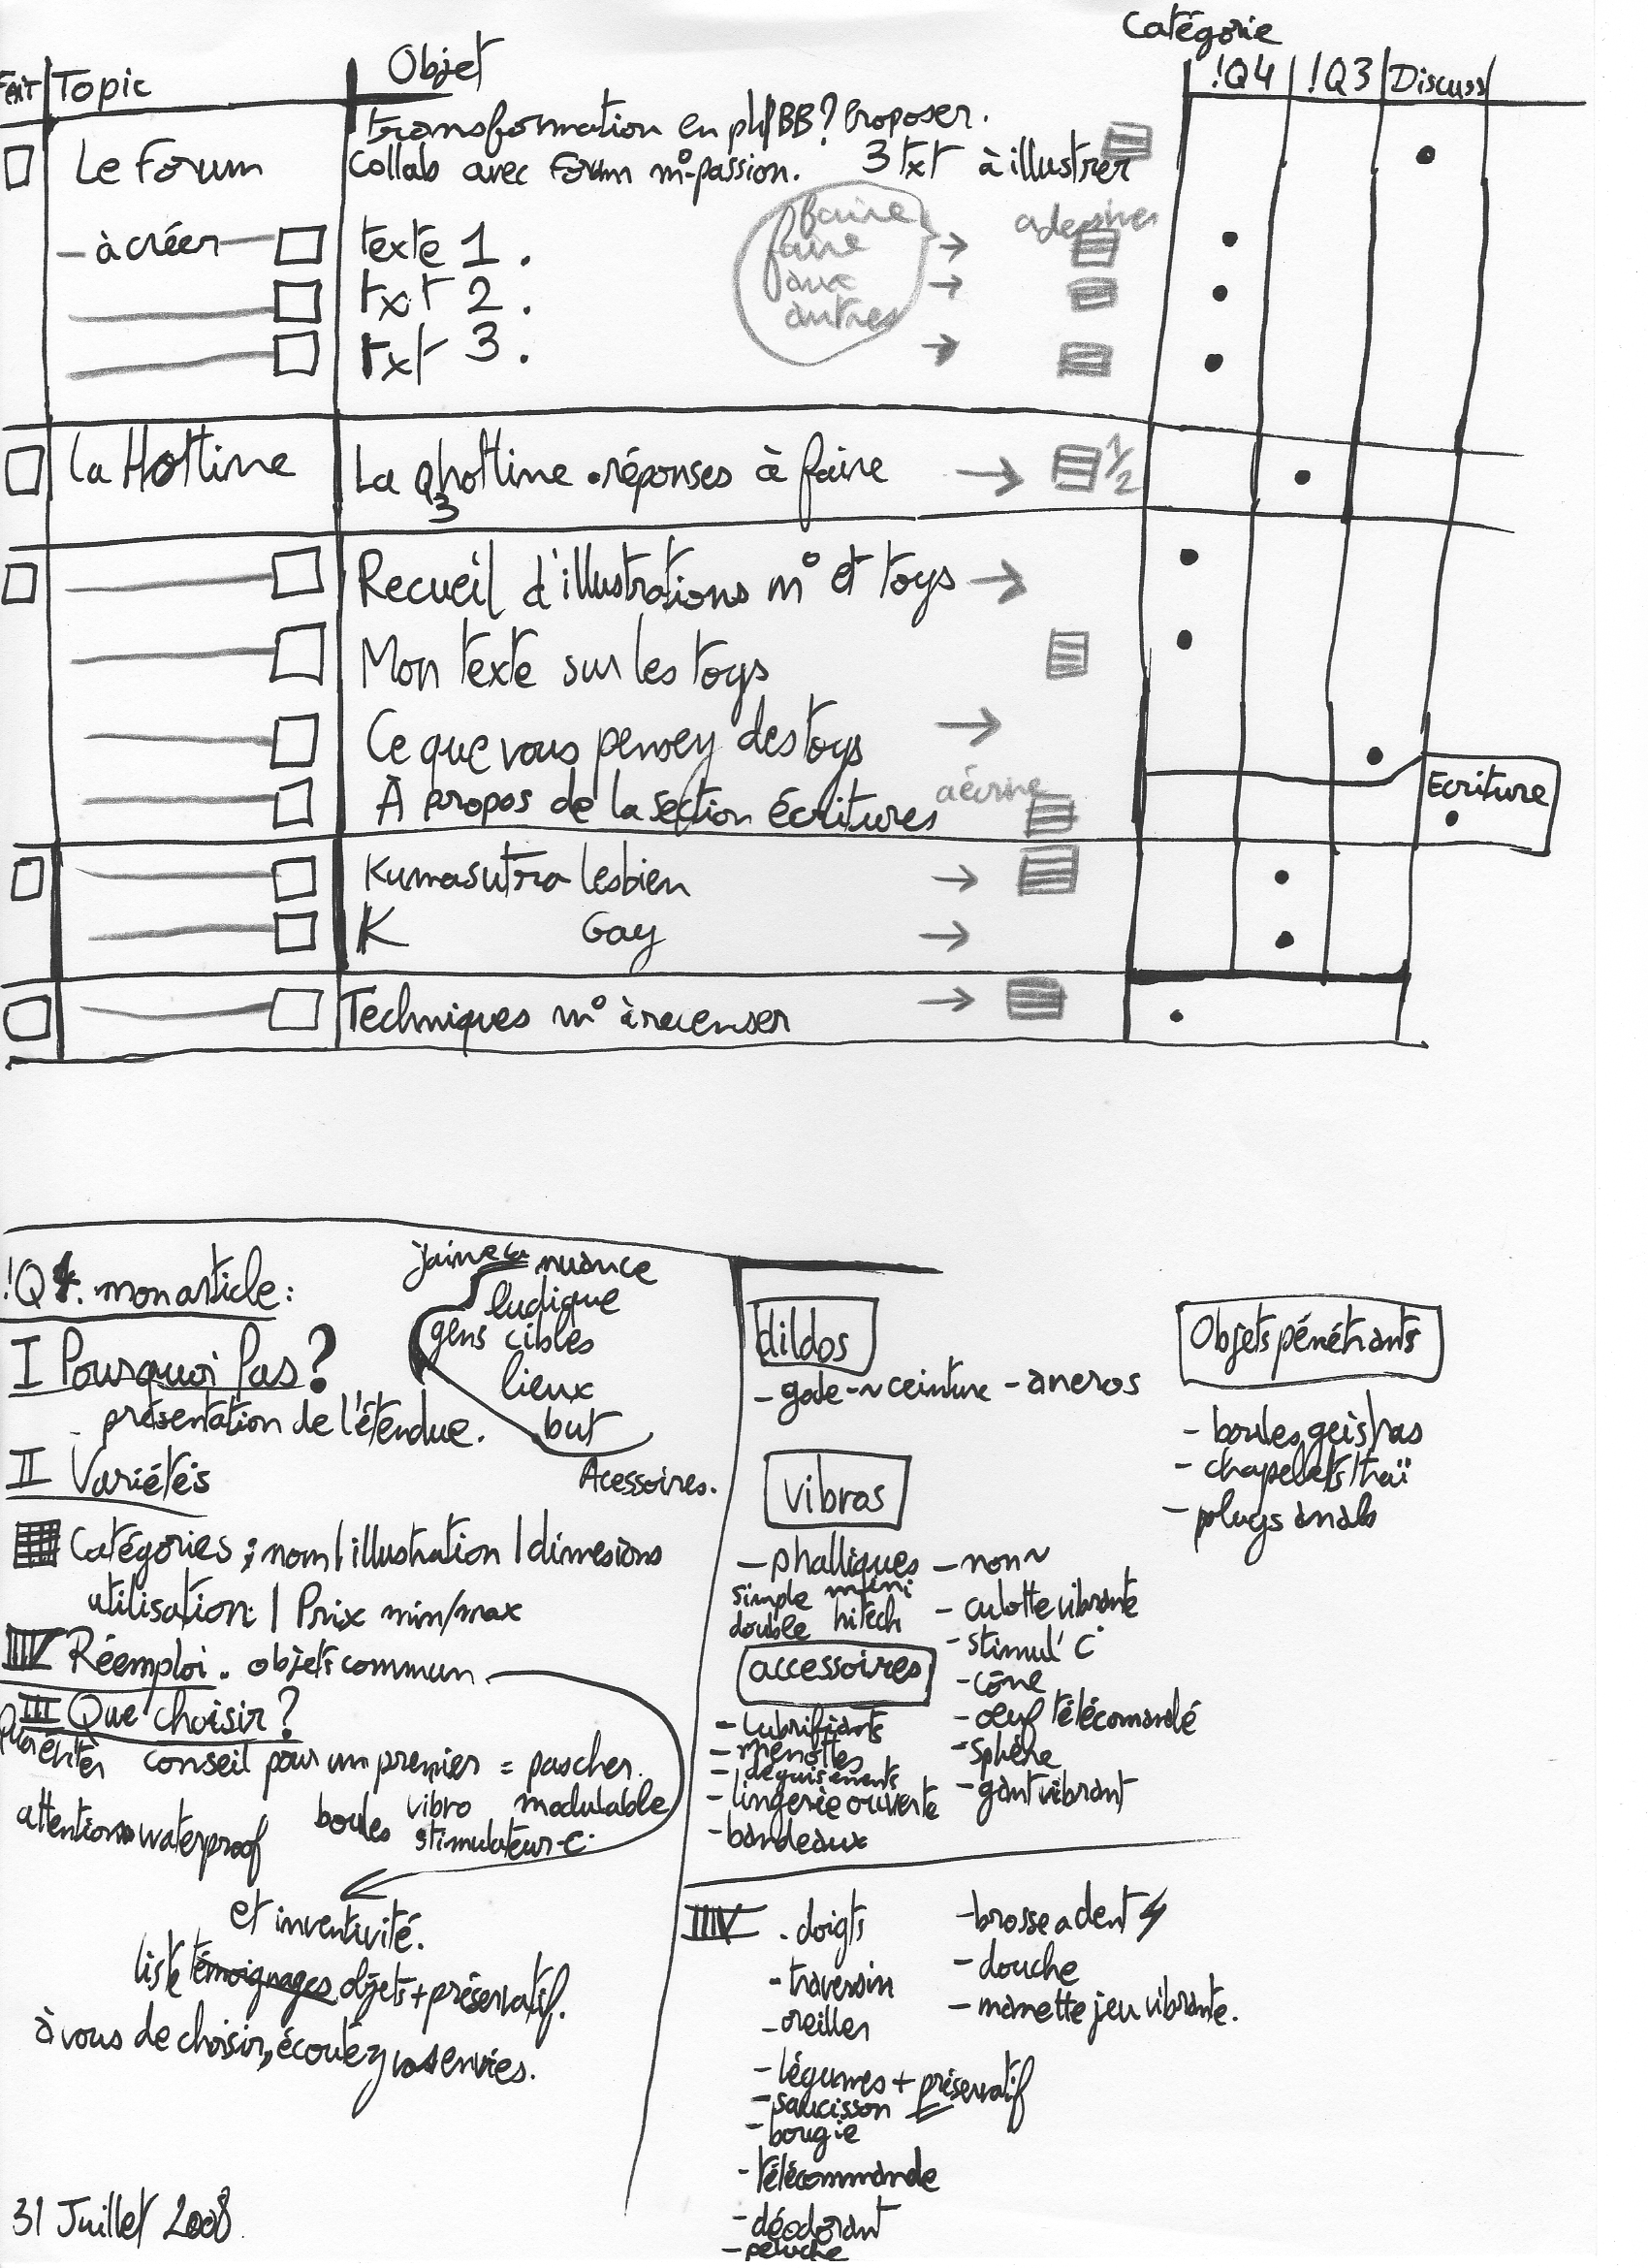 Catégorie
Fait Topic Objet !Q4 !Q3 Discuss
transformation en phpBB? Proposer.
Le Forum Collab avec Forum m°-passion. 3 txt à illustrer
faire
- à créer texte 1. faire
txt 2. aux
autres
txt 3.
La Hotline La Q3 hottline • réponses à faire 1/2
Recueil d'illustrations m° et toys
Mon texte sur les toys
Ce que vous pensez des toys
À propos de la section écritures à écrire Ecriture
Kumasutra lesbien
K Gay
Techniques m° à recenser
!Q4. mon article:
I Pourquoi Pas?
- présentation de l'étendue.
nuance
ludique
gens cibles
lieux
but
Acessoires.
II Variétés
Catégories ; nom | illustration | dimesions
utilisation: | Prix min/max
IIIV Réemploi. objets commun
III Que choisir?
conseil pour un premier = pas cher.
attention waterproof boules vibro modulable
stimulateur-C.
et inventivité.
liste témoignages objets + préservatif.
à vous de choisir, écoutez vos envies.
31 Juillet 2008
dildos
- gode - ~ ceinture - aneros
Objets pénétrants
- boules geishas
- chapelets thaï
- plugs anals
vibros
- phalliques
simple mini
double hitech
- non ~
- culotte vibrante
- stimul' C
- cône
- oeuf télécomandé
- sphère
- gant vibrant
accessoires
- lubrifiants
- menottes
- déguisements
- lingerie ouverte
- bandeaux
IIIV . doigts
- traversin
- oreiller
- légumes + préservatif
- saucisson
- bougie
- télécommande
- déodorant
- peluche
- brosse a dent
- douche
- manette jeu vibrante.